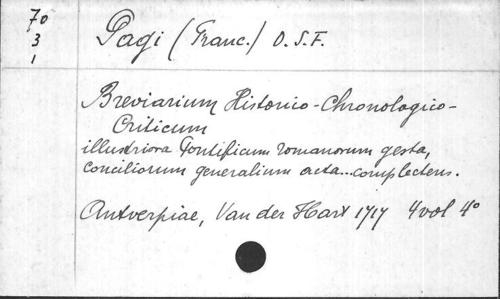 70
3
1
Pagi (Franc.) O.S.F.
Breviarium Historico-Chronologico-
Criticum
illustriora Pontificum romanorum gesta,
conciliorum generalium acta...complectens.
Antverpiae, Van der Hart 1717 4 vol 4°